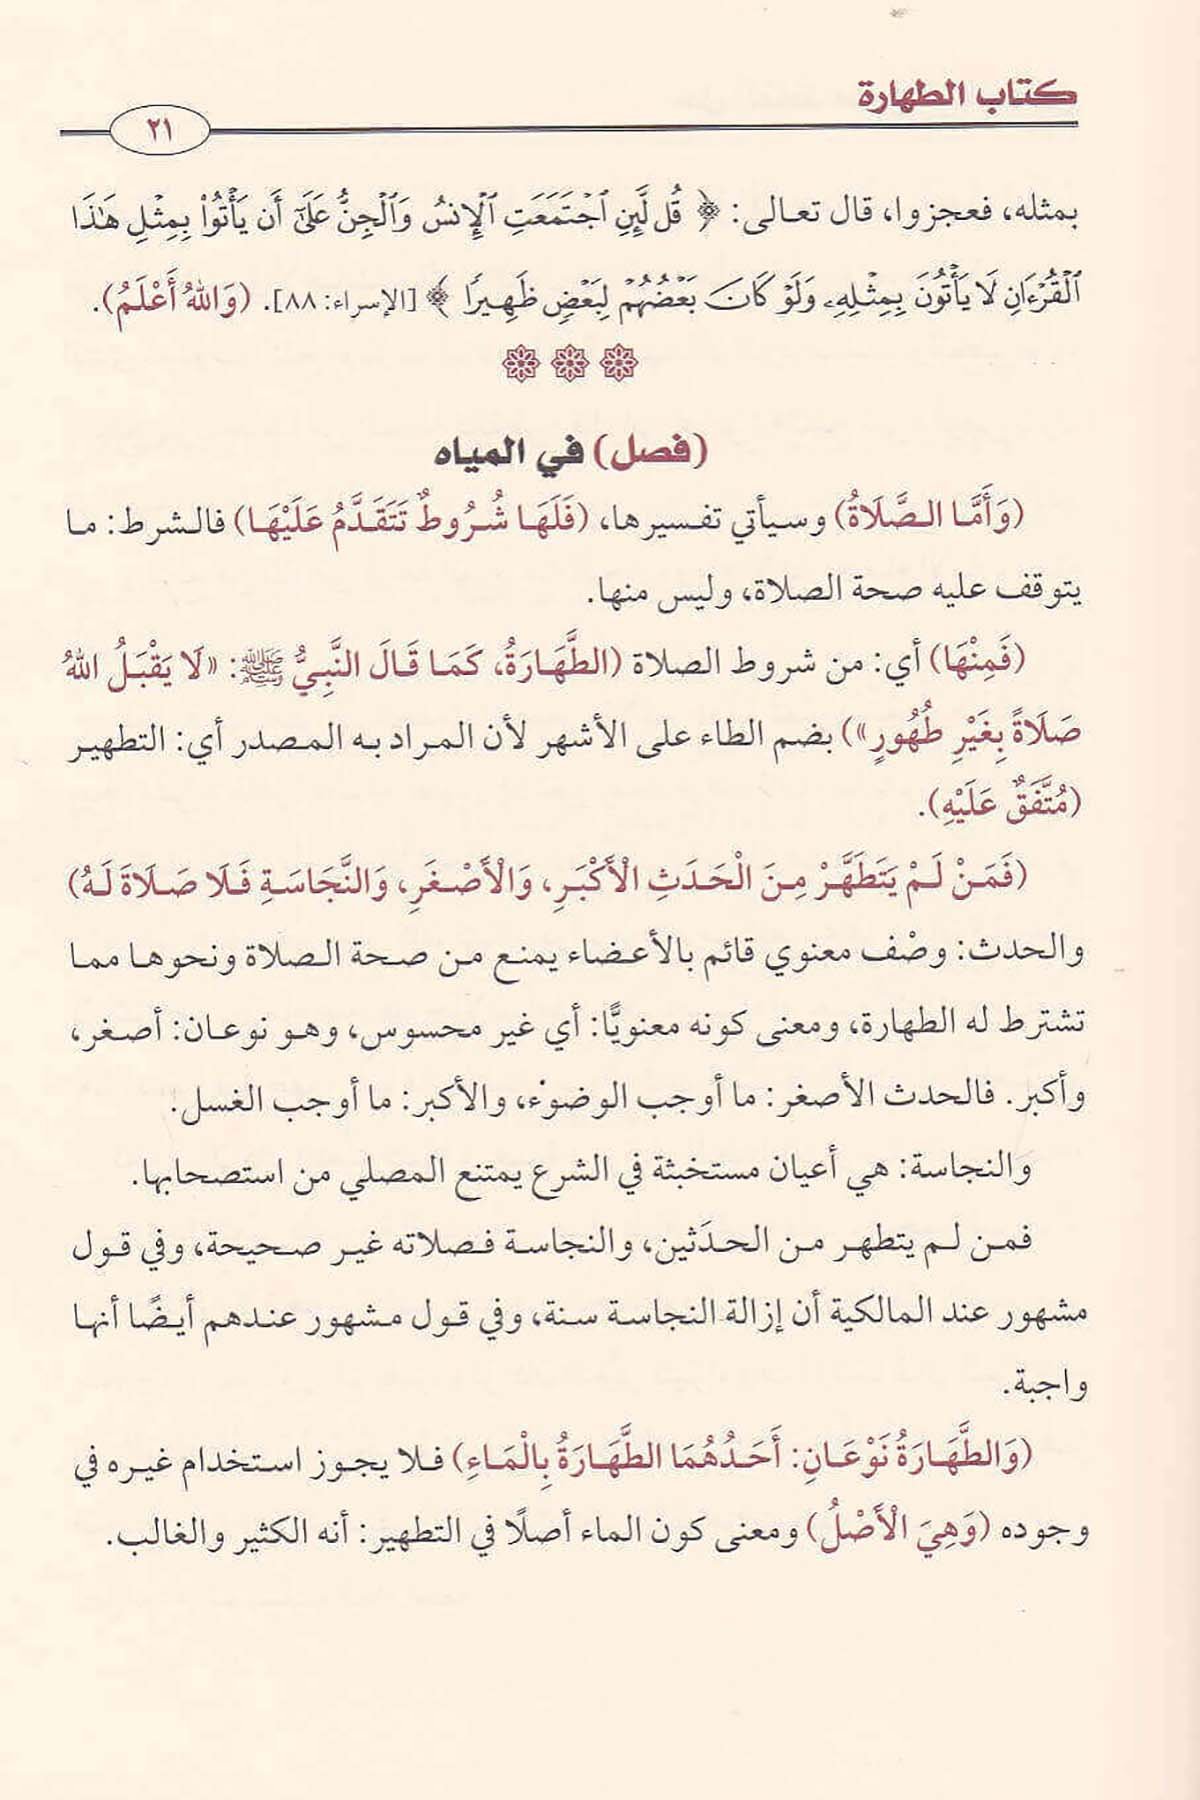 كتاب الطهارة
٢١
بمثله، فعجزوا، قال تعالى: ﴿ قُل لَّئِنِ ٱجْتَمَعَتِ ٱلْإِنسُ وَٱلْجِنُّ عَلَىٰٓ أَن يَأْتُوا۟ بِمِثْلِ هَٰذَا
ٱلْقُرْءَانِ لَا يَأْتُونَ بِمِثْلِهِۦ وَلَوْ كَانَ بَعْضُهُمْ لِبَعْضٍ ظَهِيرًا ﴾ [الإسراء: ٨٨]. (وَاللهُ أَعْلَمُ).
(فصل) في المياه
(وَأَمَّا الصَّلَاةُ) وسيأتي تفسيرها، (فَلَهَا شُرُوطٌ تَتَقَدَّمُ عَلَيْهَا) فالشرط: ما
يتوقف عليه صحة الصلاة، وليس منها.
(فَمِنْهَا) أي: من شروط الصلاة (الطَّهَارَةُ، كَمَا قَالَ النَّبِيُّ ﷺ: «لَا يَقْبَلُ اللهُ
صَلَاةً بِغَيْرِ طُهُورٍ») بضم الطاء على الأشهر لأن المراد به المصدر أي: التطهير
(مُتَّفَقٌ عَلَيْهِ).
(فَمَنْ لَمْ يَتَطَهَّرْ مِنَ الْحَدَثِ الْأَكْبَرِ، وَالْأَصْغَرِ، وَالنَّجَاسَةِ فَلَا صَلَاةَ لَهُ)
والحدث: وصْف معنوي قائم بالأعضاء يمنع من صحة الصلاة ونحوها مما
تشترط له الطهارة، ومعنى كونه معنويًّا: أي غير محسوس، وهو نوعان: أصغر،
وأكبر. فالحدث الأصغر: ما أوجب الوضوْء، والأكبر: ما أوجب الغسل.
والنجاسة: هي أعيان مستخبثة في الشرع يمتنع المصلي من استصحابها.
فمن لم يتطهر من الحدَثين، والنجاسة فصلاته غير صحيحة، وفي قول
مشهور عند المالكية أن إزالة النجاسة سنة، وفي قول مشهور عندهم أيضًا أنها
واجبة.
(وَالطَّهَارَةُ نَوْعَانِ: أَحَدُهُمَا الطَّهَارَةُ بِالْمَاءِ) فلا يجوز استخدام غيره في
وجوده (وَهِيَ الْأَصْلُ) ومعنى كون الماء أصلًا في التطهير: أنه الكثير والغالب.